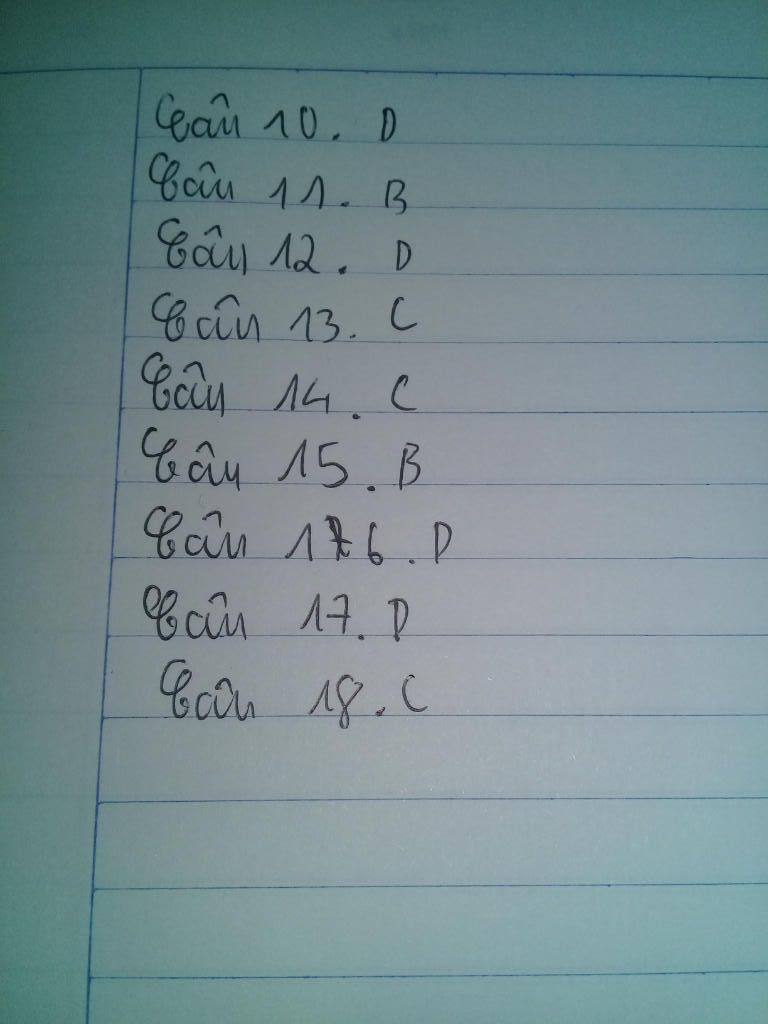 Câu 10. D
Câu 11. B
Câu 12. D
Câu 13. C
Câu 14. C
Câu 15. B
Câu 16. D
Câu 17. D
Câu 18. C